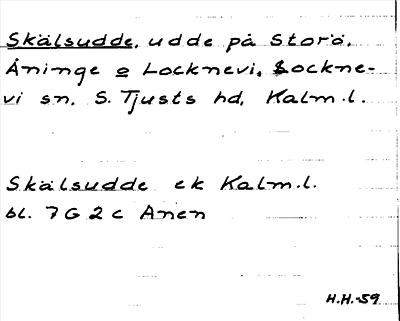 Skälsudde, udde på Storö,
Åninge o Locknevi, Lockne-
vi sn. S. Tjusts hd, Kalm.l.
Skälsudde ek Kalm.l.
bl. 7 G 2 c Anen
H.H.-59